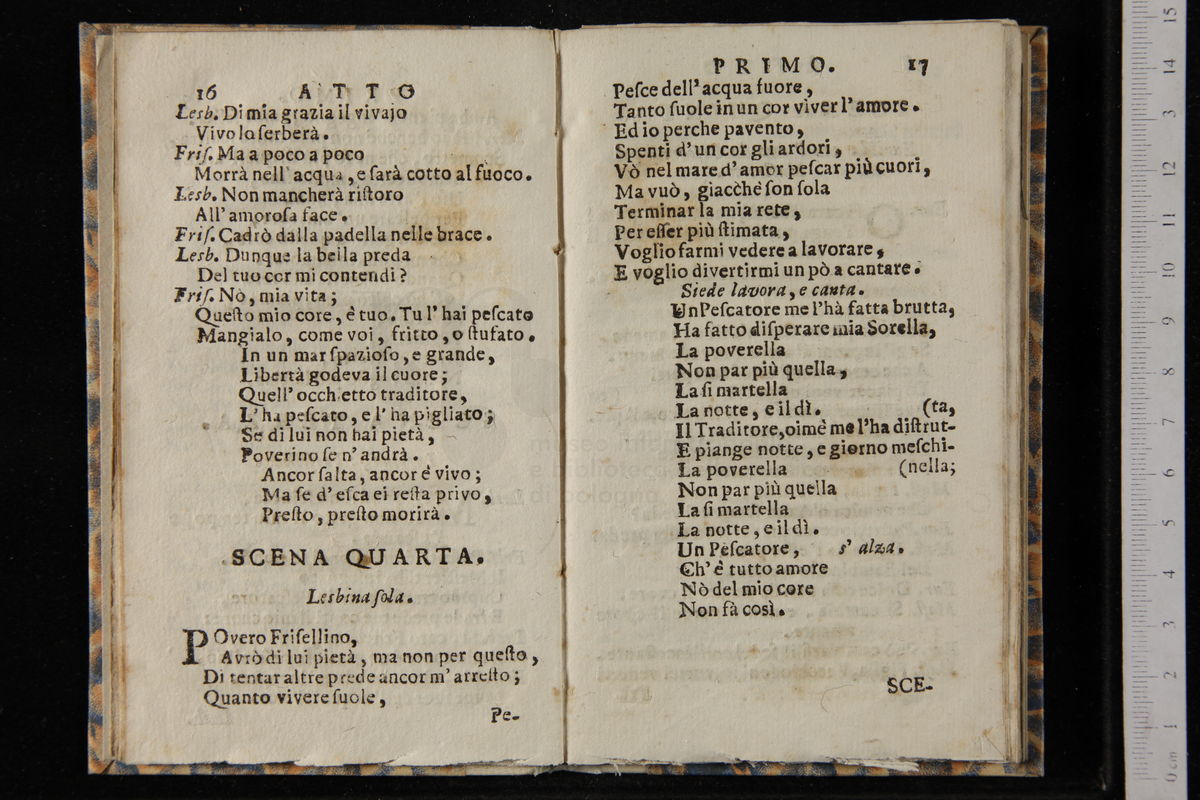 16 ATTO
Lesb. Di mia grazia il vivajo
Vivo lo ſerberà.
Friſ. Ma a poco a poco
Morrà nell'acqua, e ſarà cotto al fuoco.
Lesb. Non mancherà riſtoro
All'amoroſa face.
Friſ. Cadrò dalla padella nelle brace.
Lesb. Dunque la bella preda
Del tuo cor mi contendi?
Friſ. Nò, mia vita;
Queſto mio core, è tuo. Tu l'hai peſcato
Mangialo, come voi, fritto, o ſtufato.
In un mar ſpazioſo, e grande,
Libertà godeva il cuore;
Quell'occhietto traditore,
L'ha peſcato, e l'ha pigliato;
Se di lui non hai pietà,
Poverino ſe n'andrà.
Ancor ſalta, ancor è vivo;
Ma ſe d'eſca ei reſta privo,
Preſto, preſto morirà.
SCENA QUARTA.
Lesbina ſola.
POvero Friſellino,
Avrò di lui pietà, ma non per queſto,
Di tentar altre prede ancor m'arreſto;
Quanto vivere ſuole,
Pe-
PRIMO. 17
Peſce dell'acqua fuore,
Tanto ſuole in un cor viver l'amore.
Ed io perche pavento,
Spenti d'un cor gli ardori,
Vò nel mare d'amor peſcar più cuori,
Ma vuò, giacchè ſon ſola
Terminar la mia rete,
Per eſſer più ſtimata,
Voglio farmi vedere a lavorare,
E voglio divertirmi un pò a cantare.
Siede lavora, e canta.
UnPeſcatore me l'hà fatta brutta,
Ha fatto diſperare mia Sorella,
La poverella
Non par più quella,
La ſi martella
La notte, e il dì. (ta,
Il Traditore, oimè me l'ha diſtrut-
E piange notte, e giorno meſchi-
La poverella (nella;
Non par più quella
La ſi martella
La notte, e il dì.
Un Peſcatore, s'alza.
Ch'è tutto amore
Nò del mio core
Non fà così.
SCE-